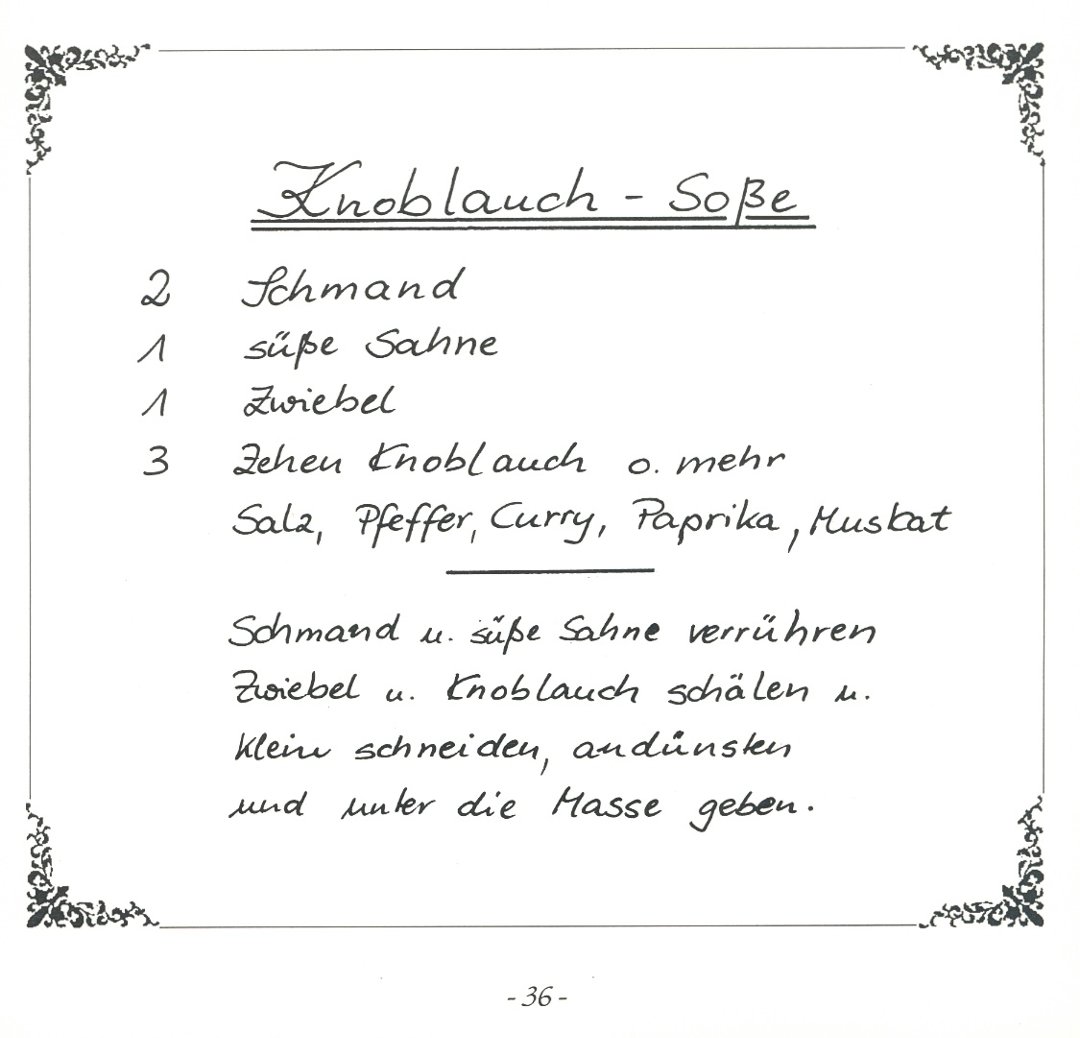 Knoblauch - Soße
2 Schmand
1 süße Sahne
1 Zwiebel
3 Zehen Knoblauch o. mehr
Salz, Pfeffer, Curry, Paprika, Muskat
Schmand u. süße Sahne verrühren
Zwiebel u. Knoblauch schälen u.
klein schneiden, andünsten
und unter die Masse geben.
- 36 -